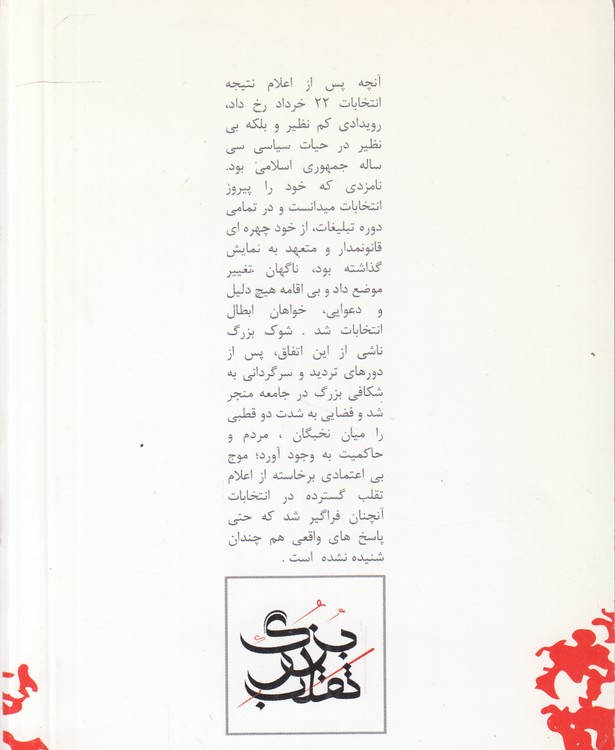 آنچه پس از اعلام نتیجه
انتخابات ۲۲ خرداد رخ داد،
رویدادی کم نظیر و بلکه بی
نظیر در حیات سیاسی سی
ساله جمهوری اسلامی بود.
نامزدی که خود را پیروز
انتخابات میدانست و در تمامی
دوره تبلیغات، از خود چهره ای
قانونمدار و متعهد به نمایش
گذاشته بود، ناگهان تغییر
موضع داد و بی اقامه هیچ دلیل
و دعوایی، خواهان ابطال
انتخابات شد . شوک بزرگ
ناشی از این اتفاق، پس از
دورهای تردید و سرگردانی به
شکافی بزرگ در جامعه منجر
شد و فضایی به شدت دو قطبی
را میان نخبگان ، مردم و
حاکمیت به وجود آورد؛ موج
بی اعتمادی برخاسته از اعلام
تقلب گسترده در انتخابات
آنچنان فراگیر شد که حتی
پاسخ های واقعی هم چندان
شنیده نشده است .
بزرگ
تقلب